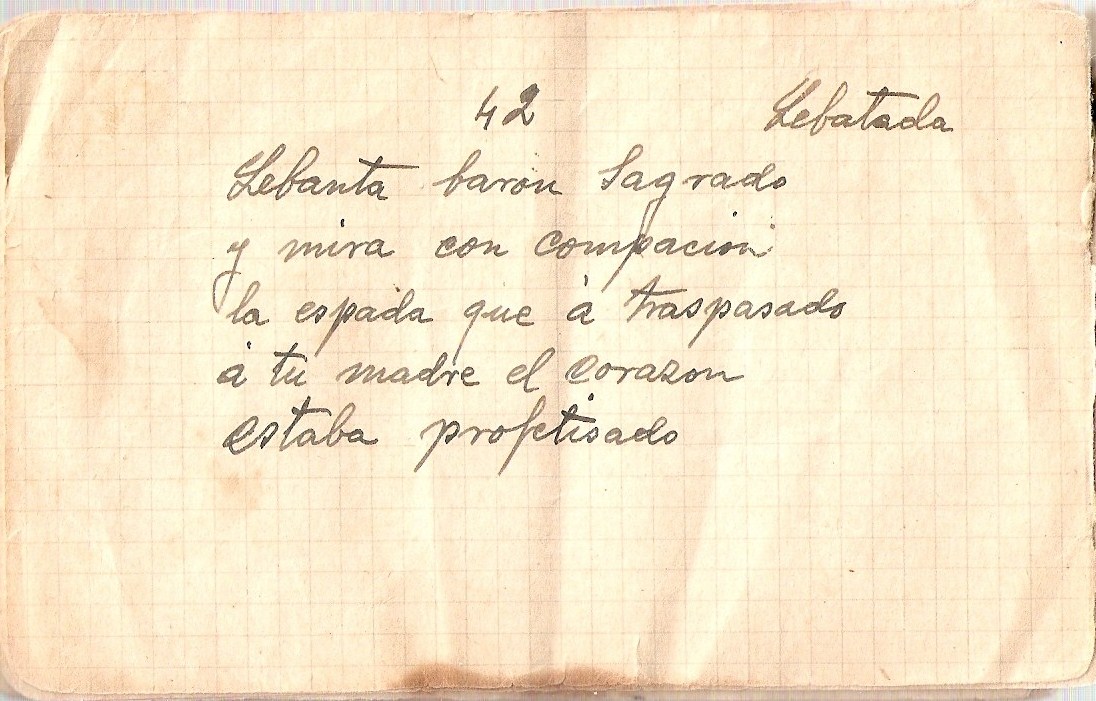 42 Lebatada
Lebanta baron Sagrado
y mira con compacion
la espada que á traspasado
á tu madre el corazon
estaba profetisado